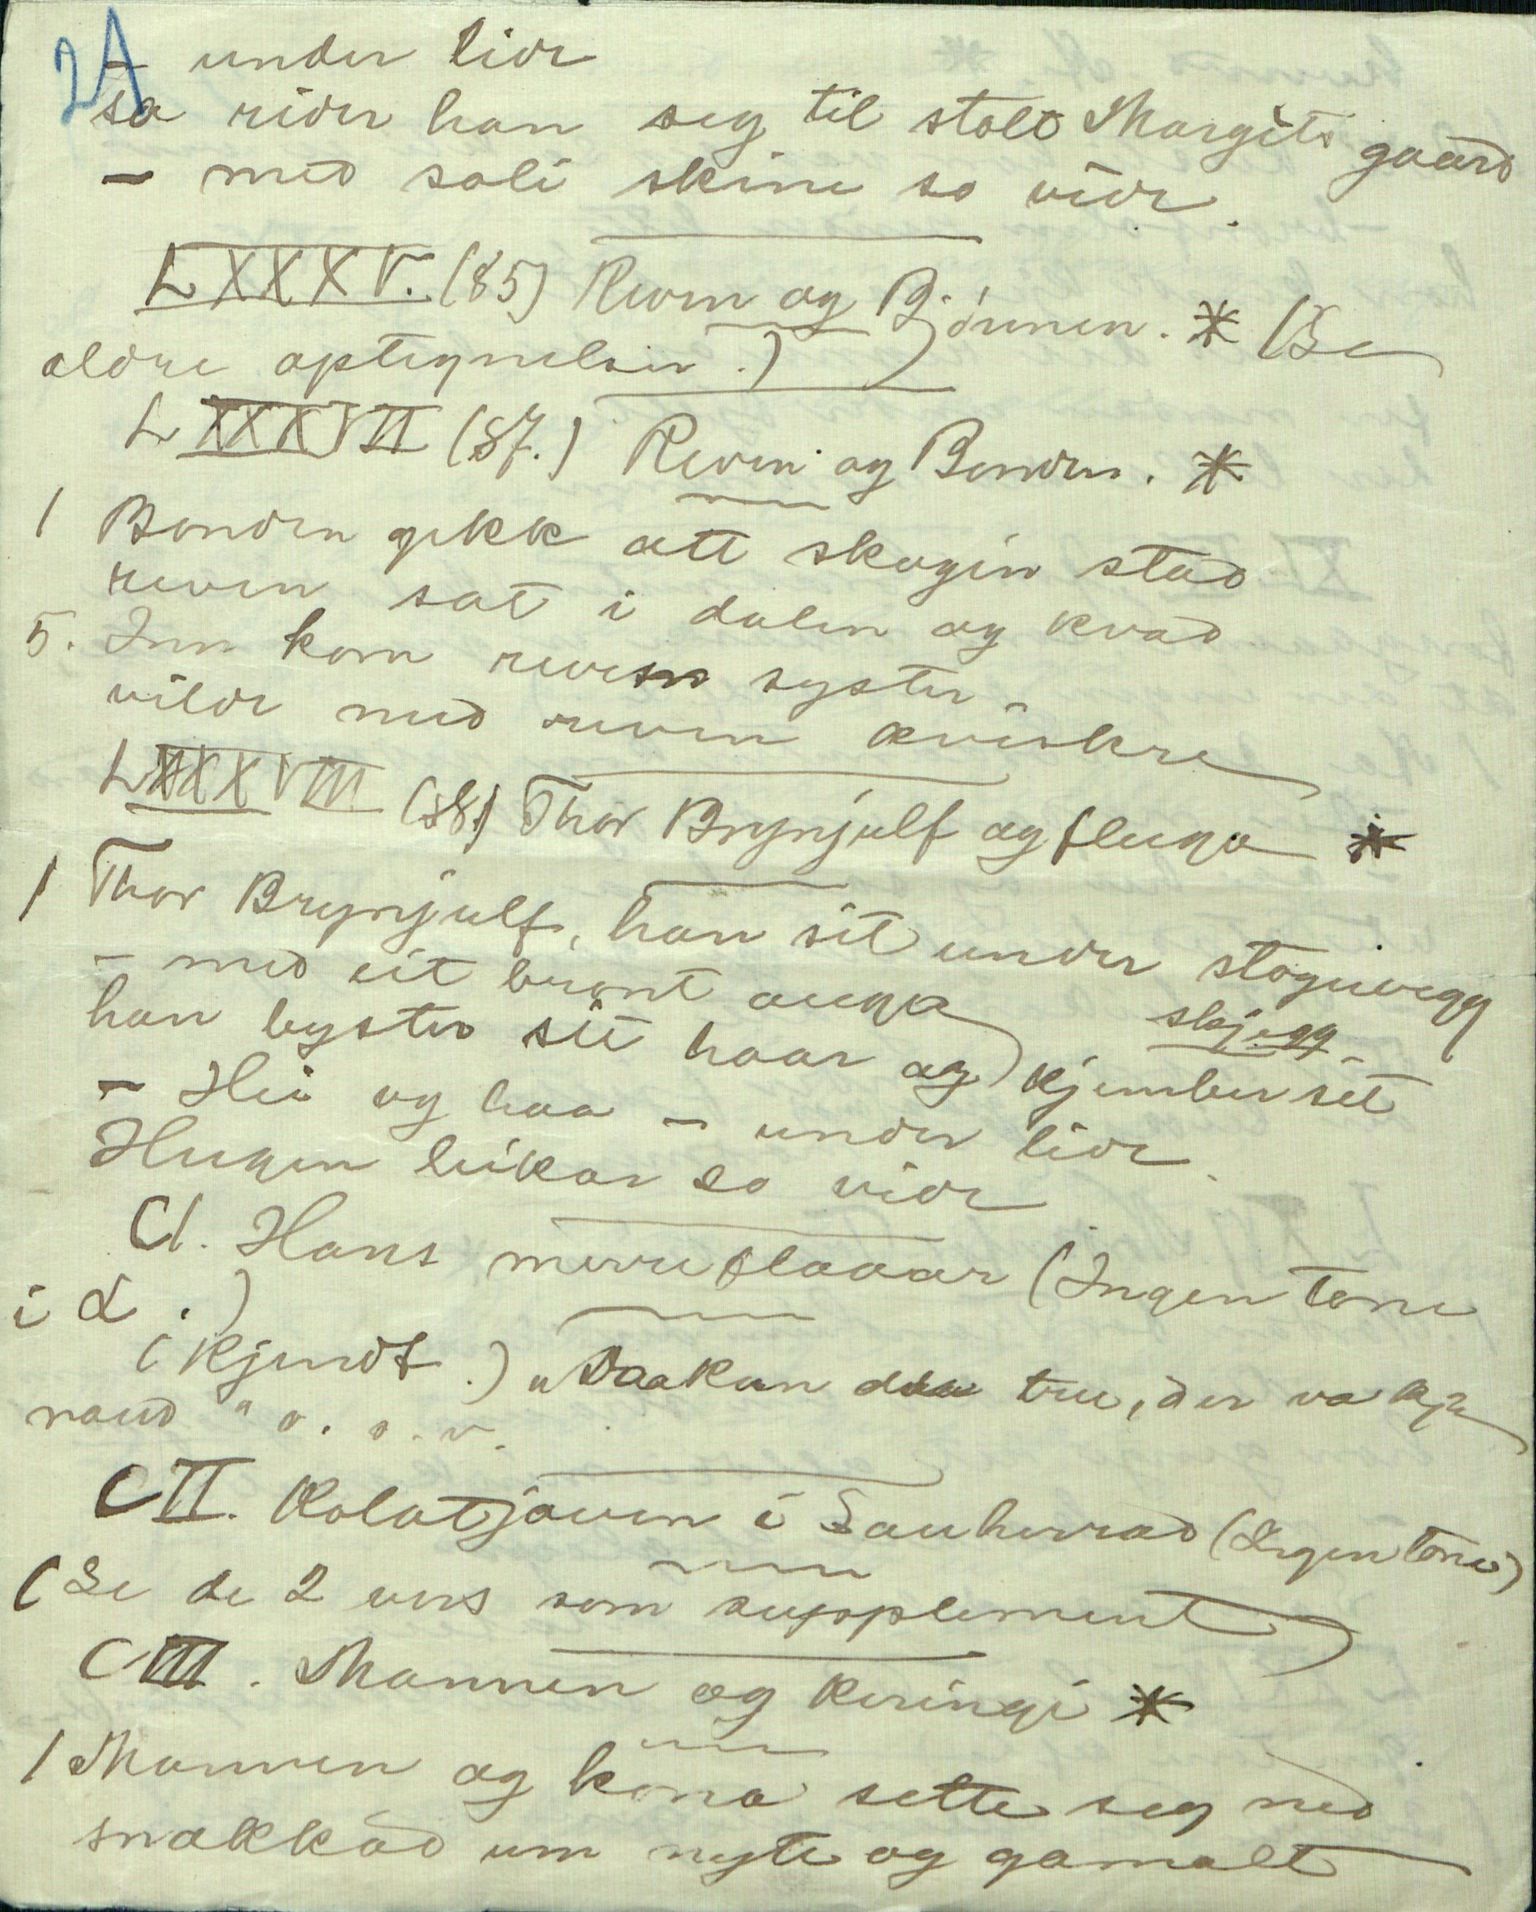 2A
– under lide
so rider han seg til stolt Margits gaard
– med soli skine so vide.
LXXXV. (85) Reven og Bjönnen. * (Se
eldre optegnelser.)
LXXXVII (87.) Reven og Bonden. *
1 Bonden gekk att skogin stad
reven sat i dalen og kvad
5. Inn kom revens syster –
vilde med reven kviskre
LXXXVIII (88) Thor Brynjulf og fluga *
1 Thor Brynjulf, han sit under stoguvegg
– med eit bront auga
skjegg –
han byster sit haar og kjember sit
– Hei og haa – under lide
Hugen leikar so vide.
CI. Hans merreflaaar (Ingen tone
i L.)
(Kjendt.) „Daa kan true, der va kje
naud" o. s. v.
CII. Kolatjøven i Sauherad (Ingen tone)
(Se de 2 vers som supplement)
CIII. Mannen og Keringi *
1 Mannen og kona sette seg ned
snakkad um nytt og gamalt